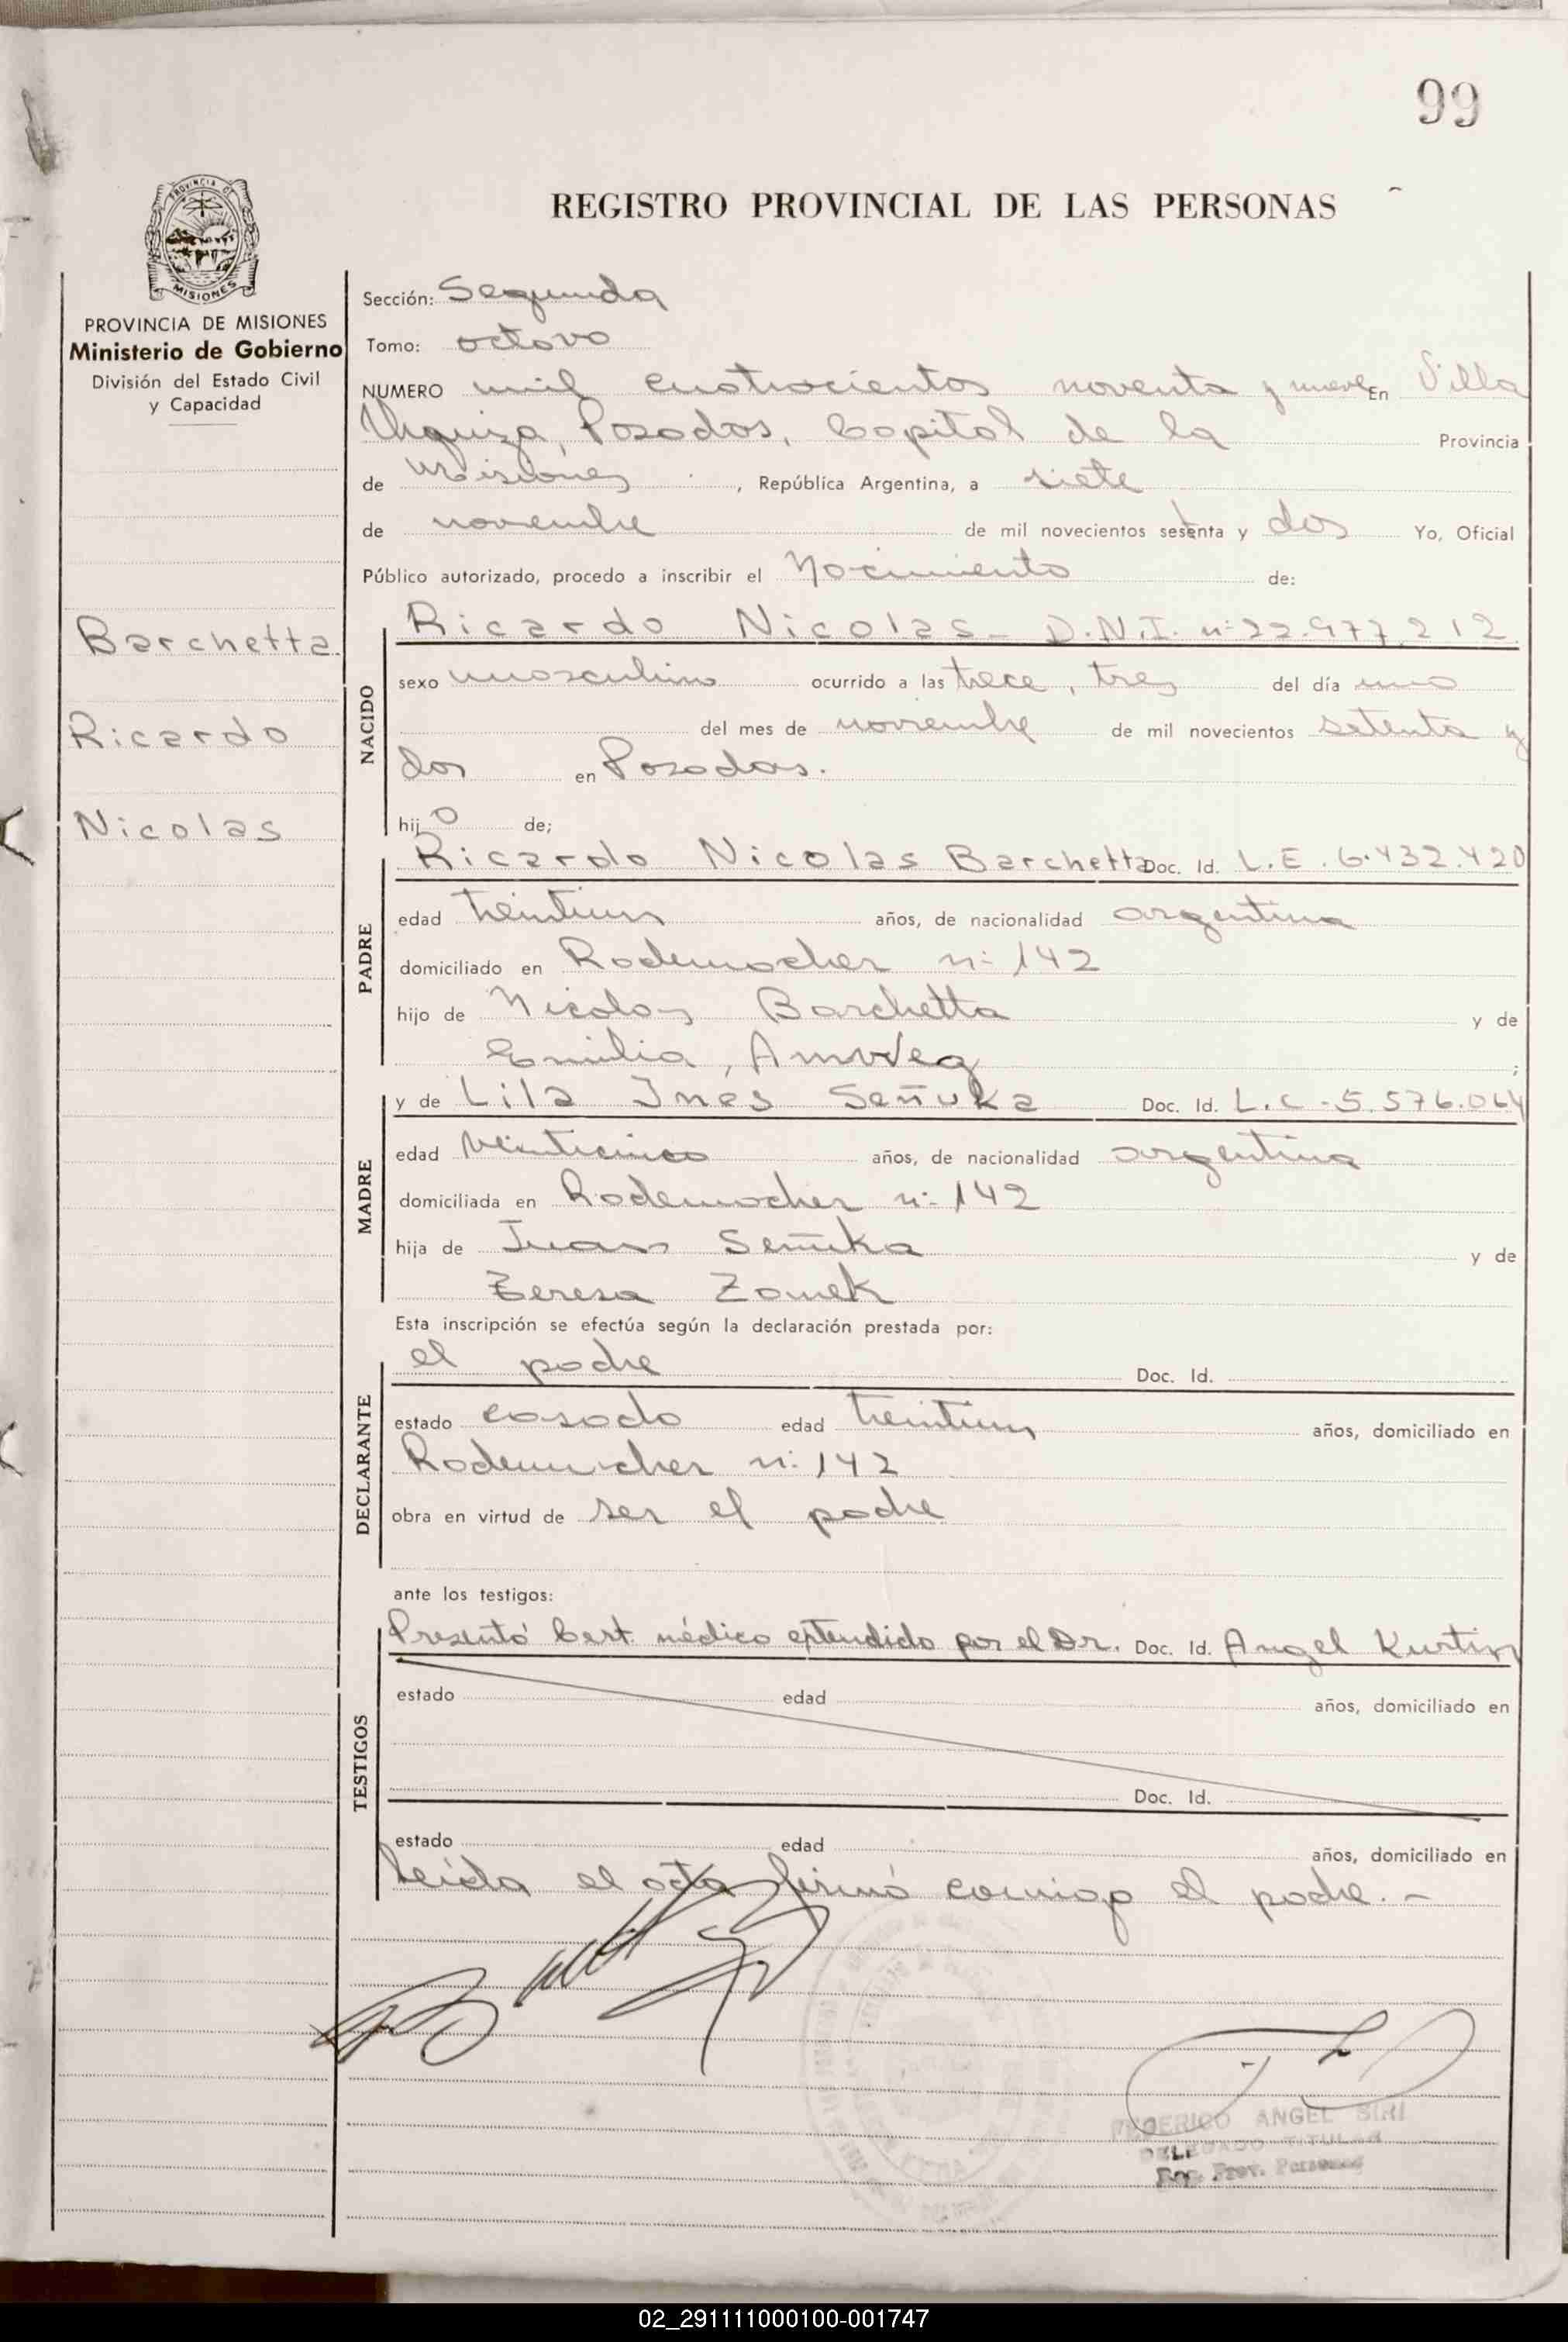 99
REGISTRO PROVINCIAL DE LAS PERSONAS
PROVINCIA DE
MISIONES
PROVINCIA DE MISIONES
Ministerio de Gobierno
División del Estado Civil
y Capacidad
Barchetta
Ricardo
Nicolas
Sección: Segunda
Tomo: octavo
NUMERO mil cuatrocientos noventa y nueve En Villa
Urquiza, Posadas, Capital de la Provincia
de Misiones, República Argentina, a siete
de noviembre de mil novecientos setenta y dos Yo, Oficial
Público autorizado, procedo a inscribir el Nacimiento de:
NACIDO
Ricardo Nicolas - D.N.I. nº 22.977.212
sexo masculino ocurrido a las trece, tres del día uno
del mes de noviembre de mil novecientos setenta y
dos en Posadas.
hijo de;
PADRE
Ricardo Nicolas Barchetta Doc. Id. L.E. 6.432.420
edad treintiun años, de nacionalidad argentina
domiciliado en Rodemacher nº 142
hijo de Nicolas Barchetta y de
Emilia, Amweg ;
MADRE
y de Lila Inés Señuka Doc. Id. L.C - 5.576.064
edad veinticinco años, de nacionalidad argentina
domiciliada en Rodemacher nº 142
hija de Juan Señuka y de
Teresa Zomek
Esta inscripción se efectúa según la declaración prestada por:
DECLARANTE
el padre Doc. Id.
estado casado edad treintiun años, domiciliado en
Rodemacher nº 142
obra en virtud de ser el padre
ante los testigos:
TESTIGOS
Presentó Cert. médico extendido por el Dr. Doc. Id. Angel Kurtin
estado edad años, domiciliado en
Doc. Id.
estado edad años, domiciliado en
Leída el acta firmó conmigo el padre. -
FEDERICO ANGEL SIRI
DELEGADO TITULAR
Reg. Prov. Personas
02_291111000100-001747